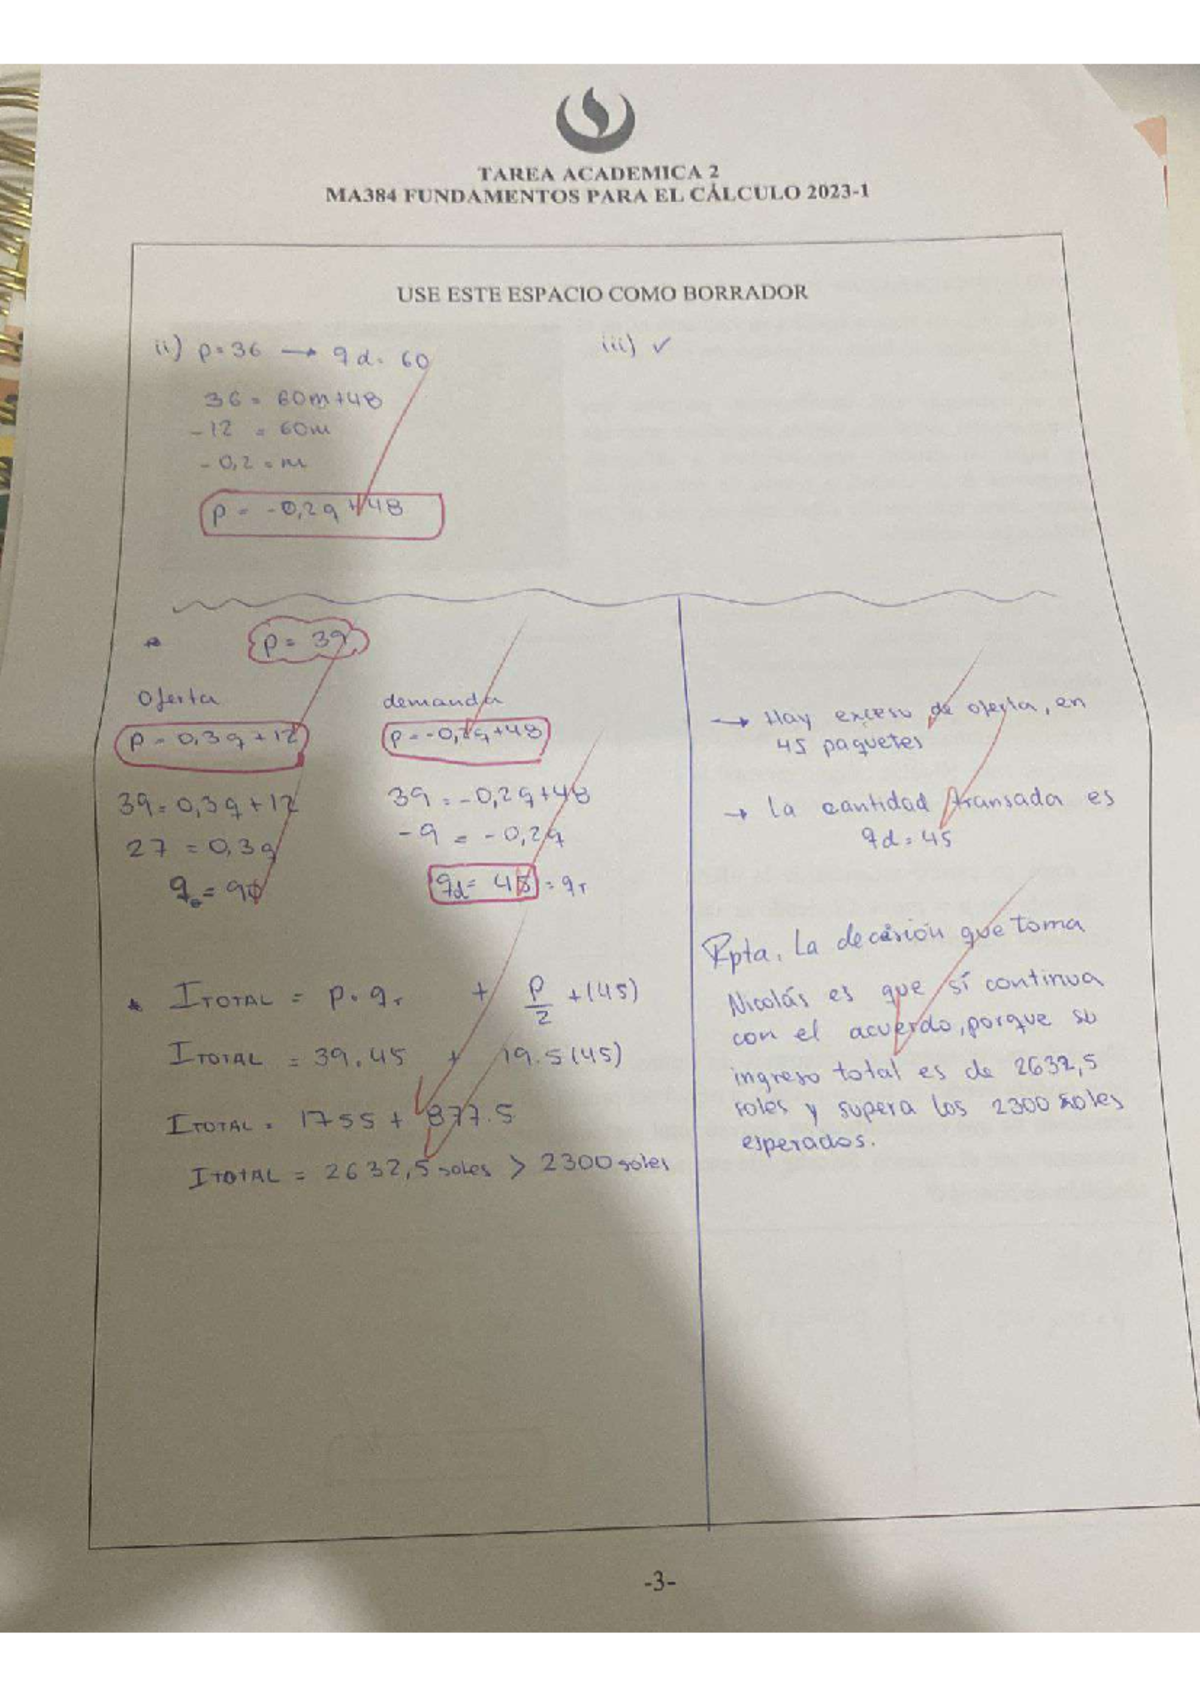 TAREA ACADEMICA 2
MA384 FUNDAMENTOS PARA EL CÁLCULO 2023-1
USE ESTE ESPACIO COMO BORRADOR
ii) p=36 → qd= 60
36 = 60m+48
-12 = 60m
-0,2 = m
p = -0,2q+48
iii) ✓
p= 39
Oferta
p = 0,3q+12
39=0,3q+12
27 = 0,3q
qo = 90
demanda
p=-0,2q+48
39 = -0,2q+48
-9 = -0,2q
qd= 45 = qr
* ITOTAL = p.qr + p/2 +(45)
ITOTAL = 39.45 + 19.5(45)
ITOTAL = 1755 + 877.5
ITOTAL = 2632,5 soles > 2300 soles
→ Hay exceso de oferta, en
45 paquetes
→ La cantidad transada es
qd=45
Rpta. La decisión que toma
Nicolás es que sí continua
con el acuerdo, porque su
ingreso total es de 2632,5
soles y supera los 2300 soles
esperados.
-3-